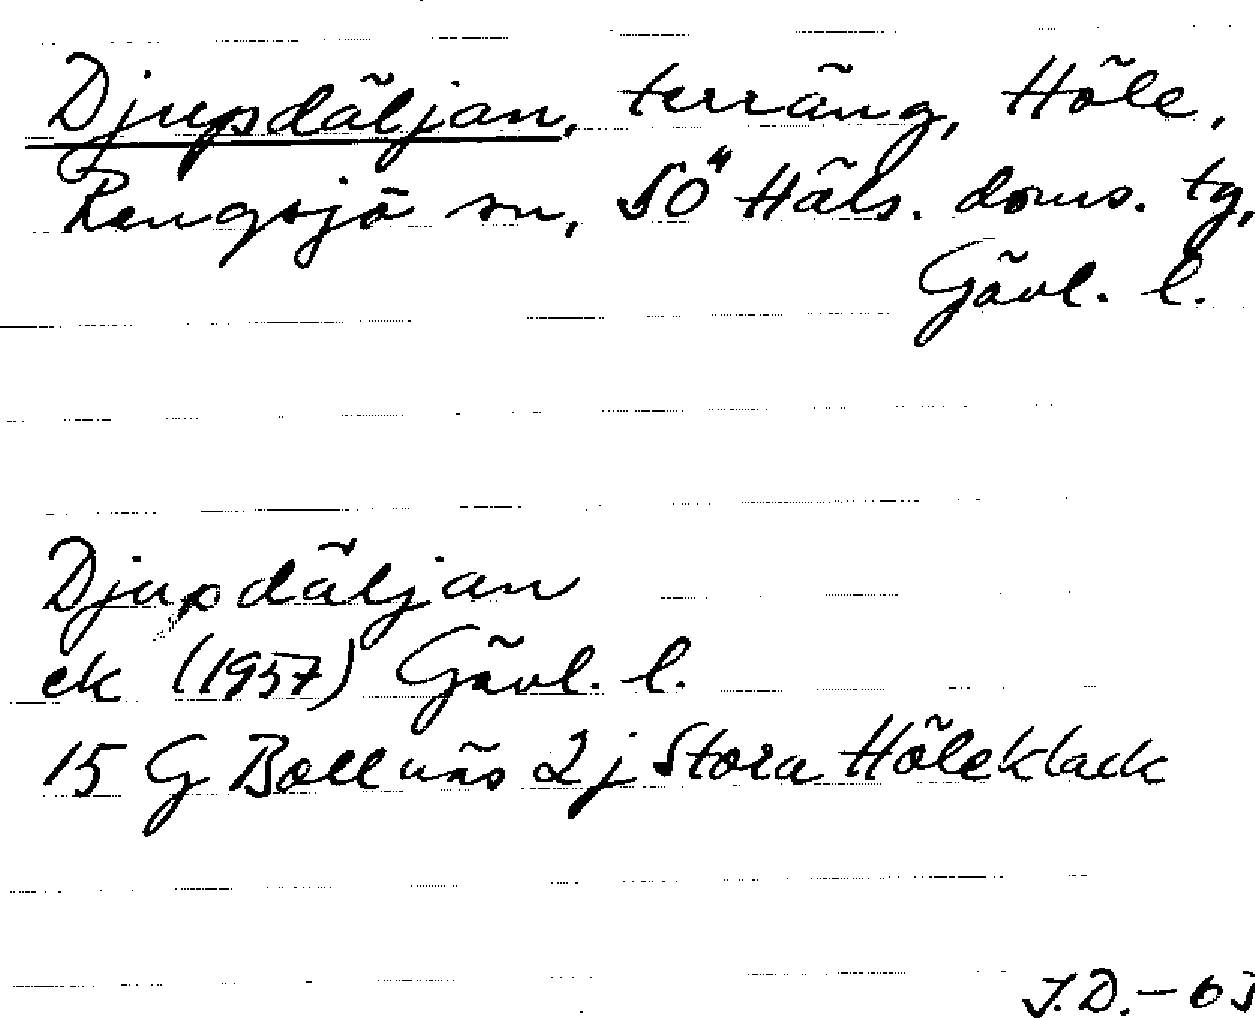 Djupdäljan, terräng, Höle,
Rengsjö sn, SÖ Häls. doms. tg,
Gävl. l.
Djupdäljan
ek (1957) Gävl. l.
15 G Bollnäs 2 j Stora Höleklack